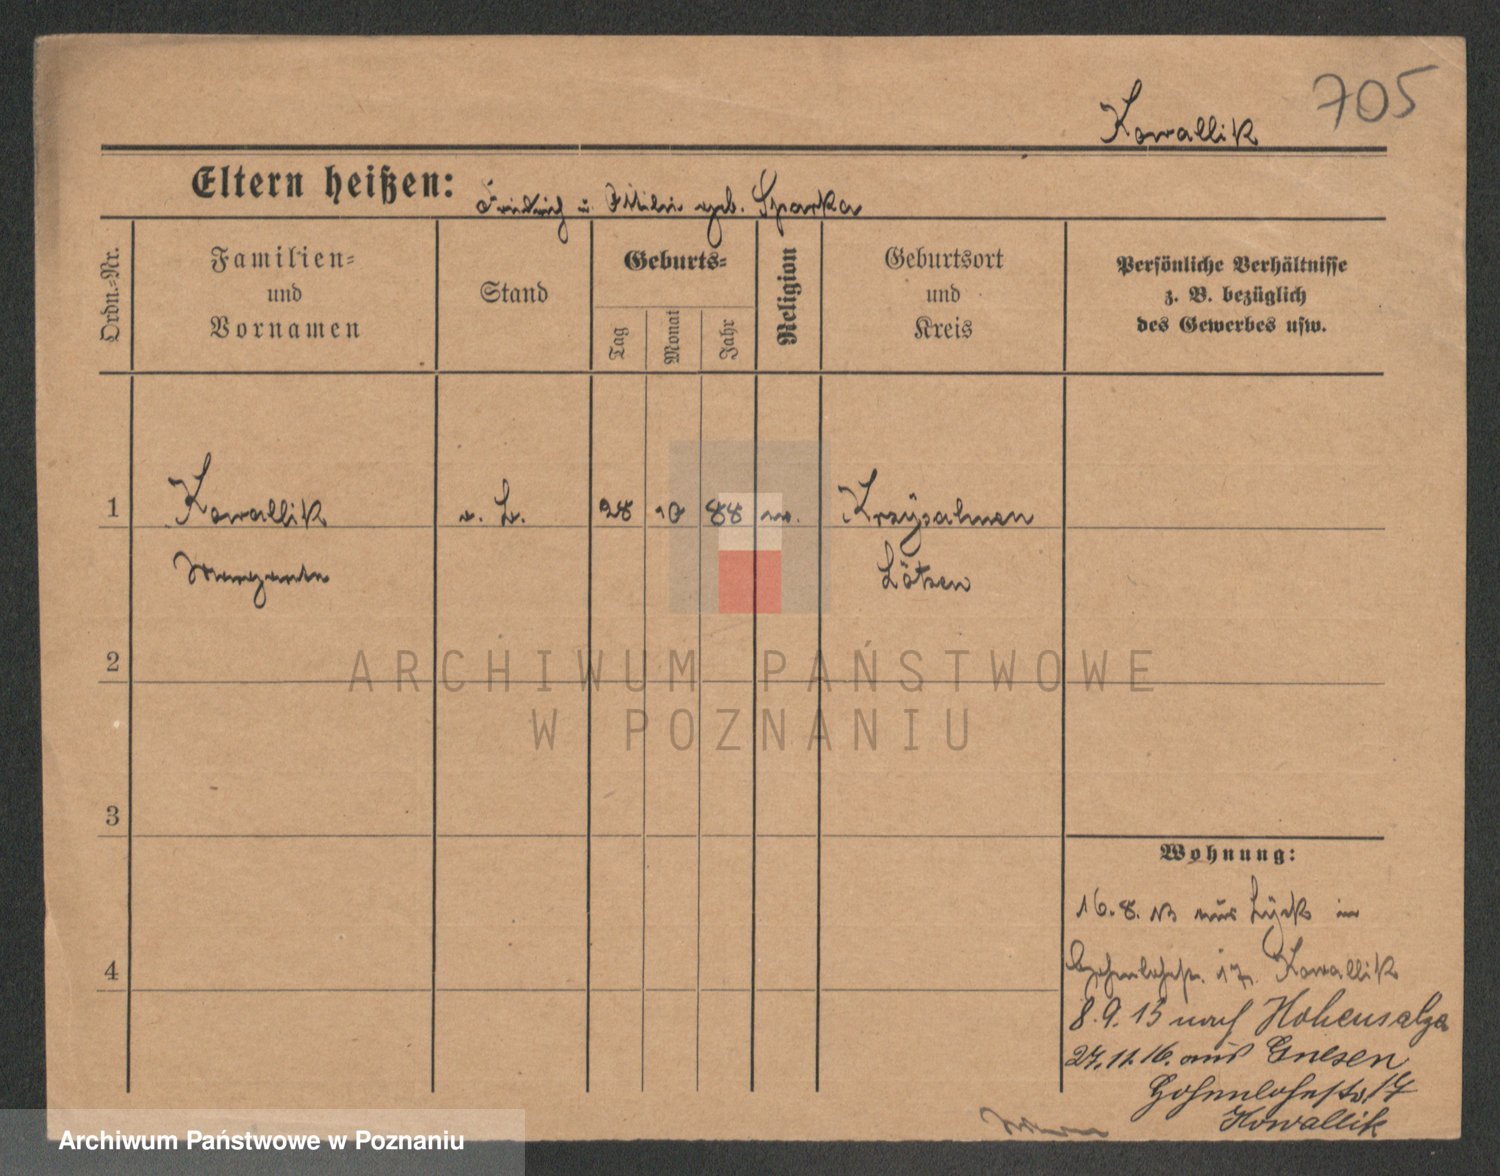 705
Kowallik
Eltern heißen: Friedrich u. geb. Sparka
Ordn.-Nr.
Familien-
und
Vornamen
Stand
Geburts-
Tag
Monat
Jahr
Religion
Geburtsort
und
Kreis
Persönliche Verhältnisse
z. B. bezüglich
des Gewerbes usw.
1 Kowallik 28 10 88 Krzysahnen
Margarete Lötzen
2
3
4
ARCHIWUM PAŃSTWOWE
W POZNANIU
Wohnung:
16.8.13 aus Lyck in
Hohenlohestr. 17. Kowallik
8.9.13 nach Hohensalza
27.11.16. aus Gnesen
Hohenlohestr. 17
Kowallik
Archiwum Państwowe w Poznaniu